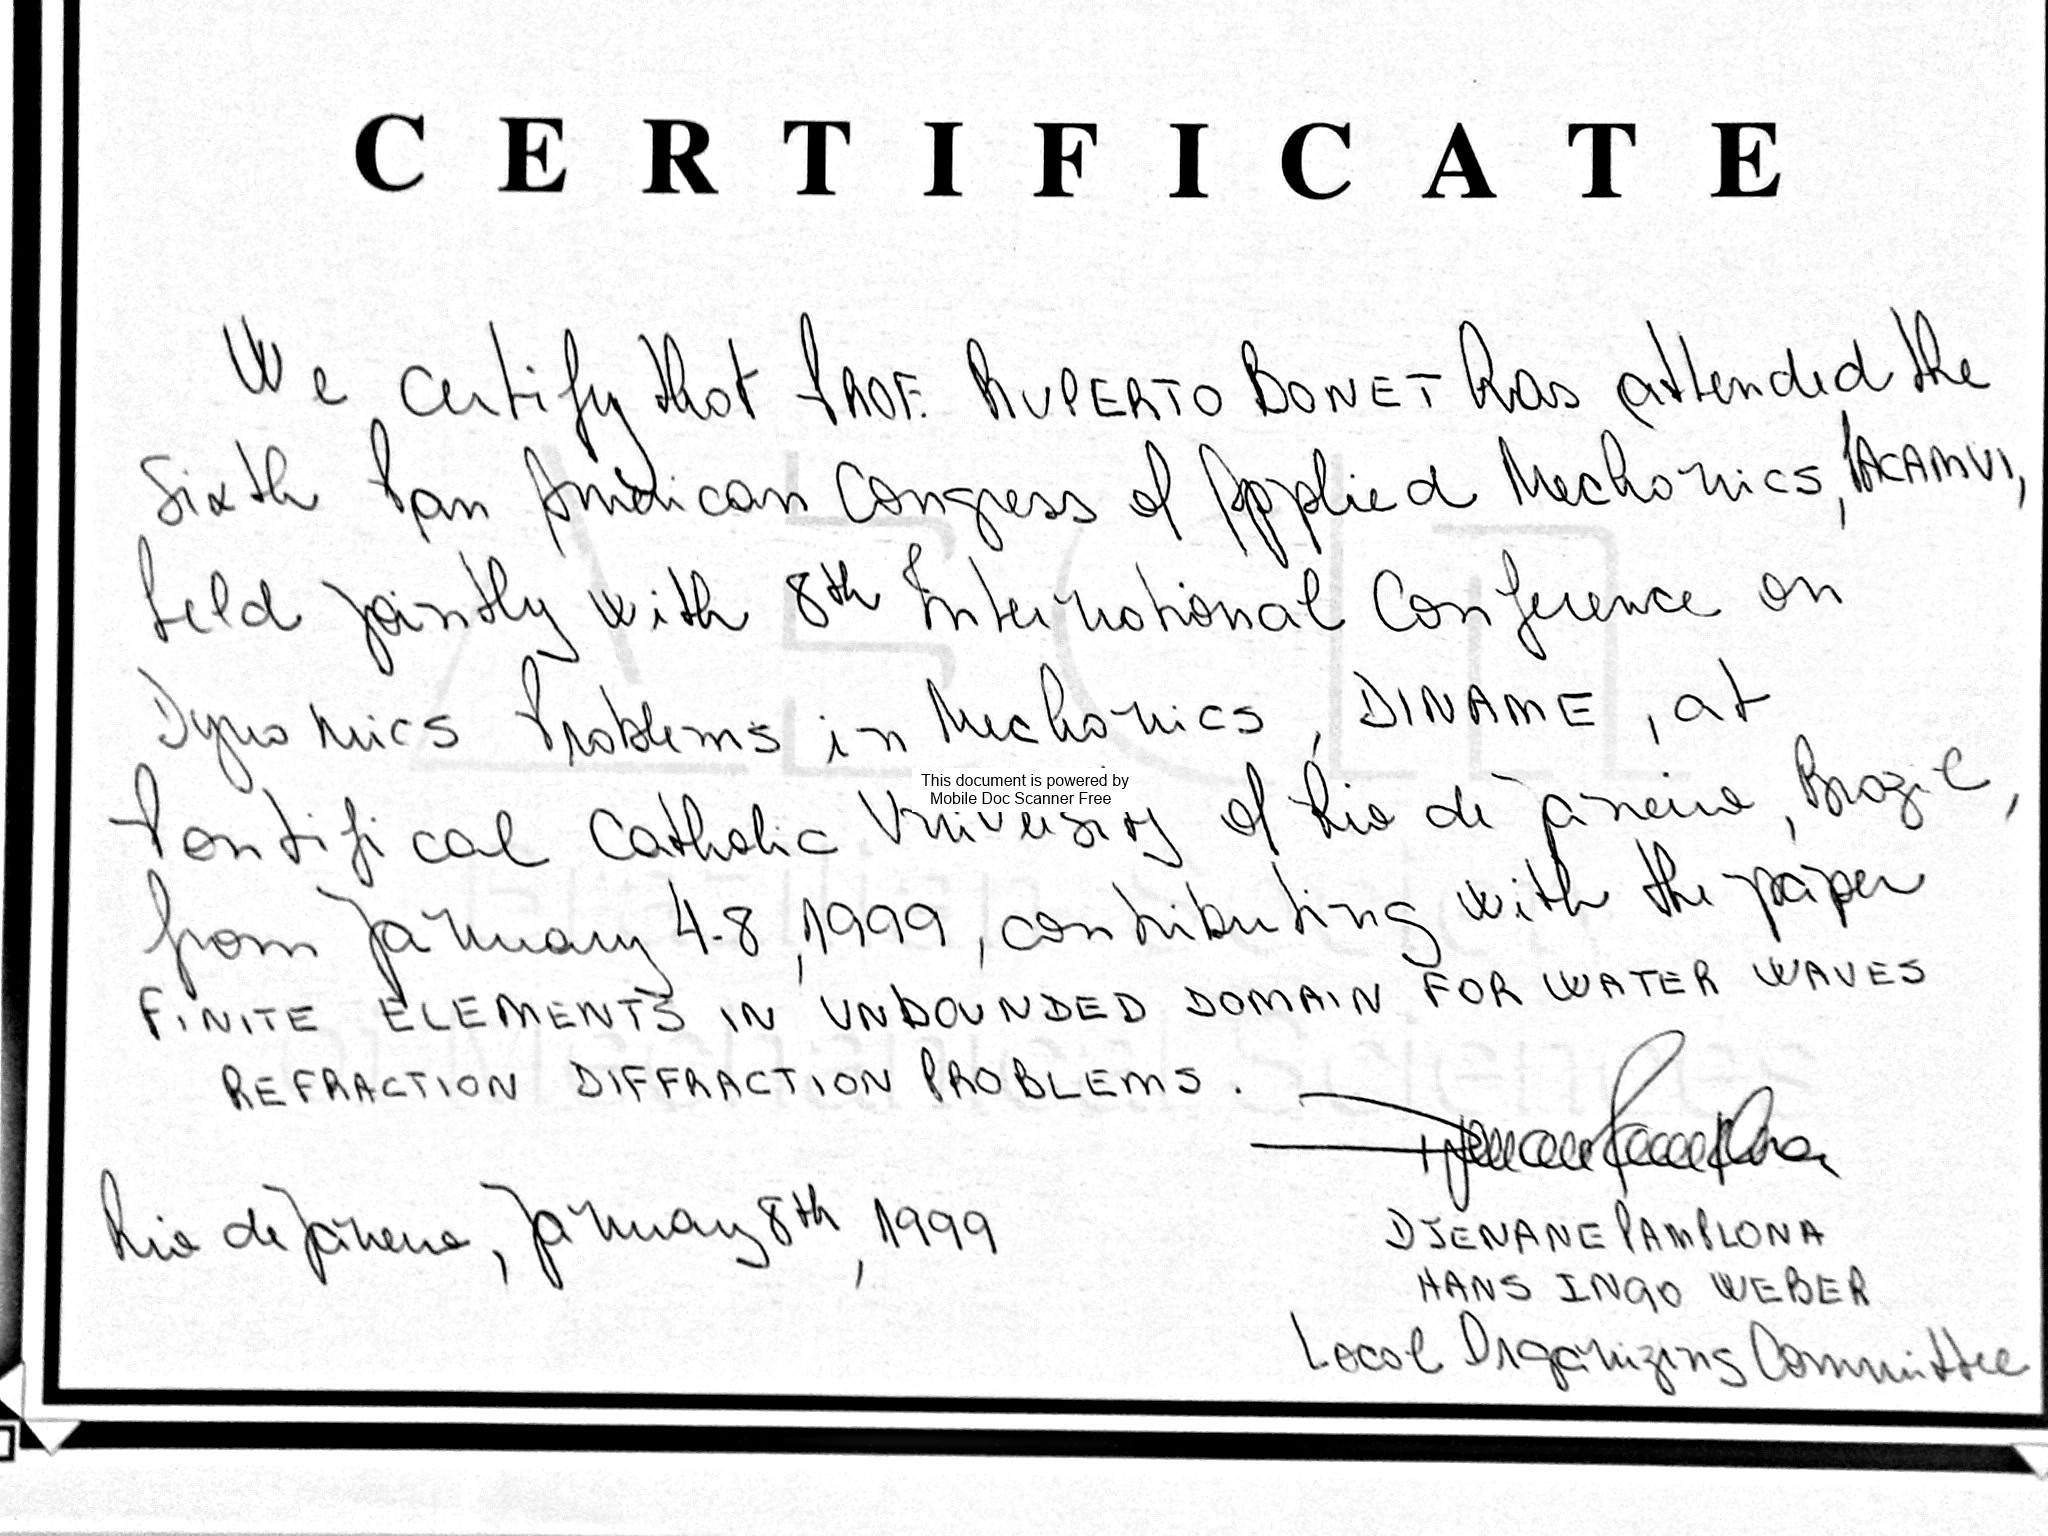 CERTIFICATE
We certify that PROF. RUPERTO BONET has attended the
Sixth Pan American Congress of Applied Mechanics, PACAM VI,
held jointly with 8th International Conference on
Dynamics Problems in Mechanics, DINAME, at
This document is powered by
Mobile Doc Scanner Free
Pontifical Catholic University of Rio de Janeiro, Brazil,
from January 4-8, 1999, contributing with the paper
FINITE ELEMENTS IN UNBOUNDED DOMAIN FOR WATER WAVES
REFRACTION DIFFRACTION PROBLEMS.
Rio de Janeiro, January 8th, 1999
DJENANE PAMPLONA
HANS INGO WEBER
Local Organizing Committee